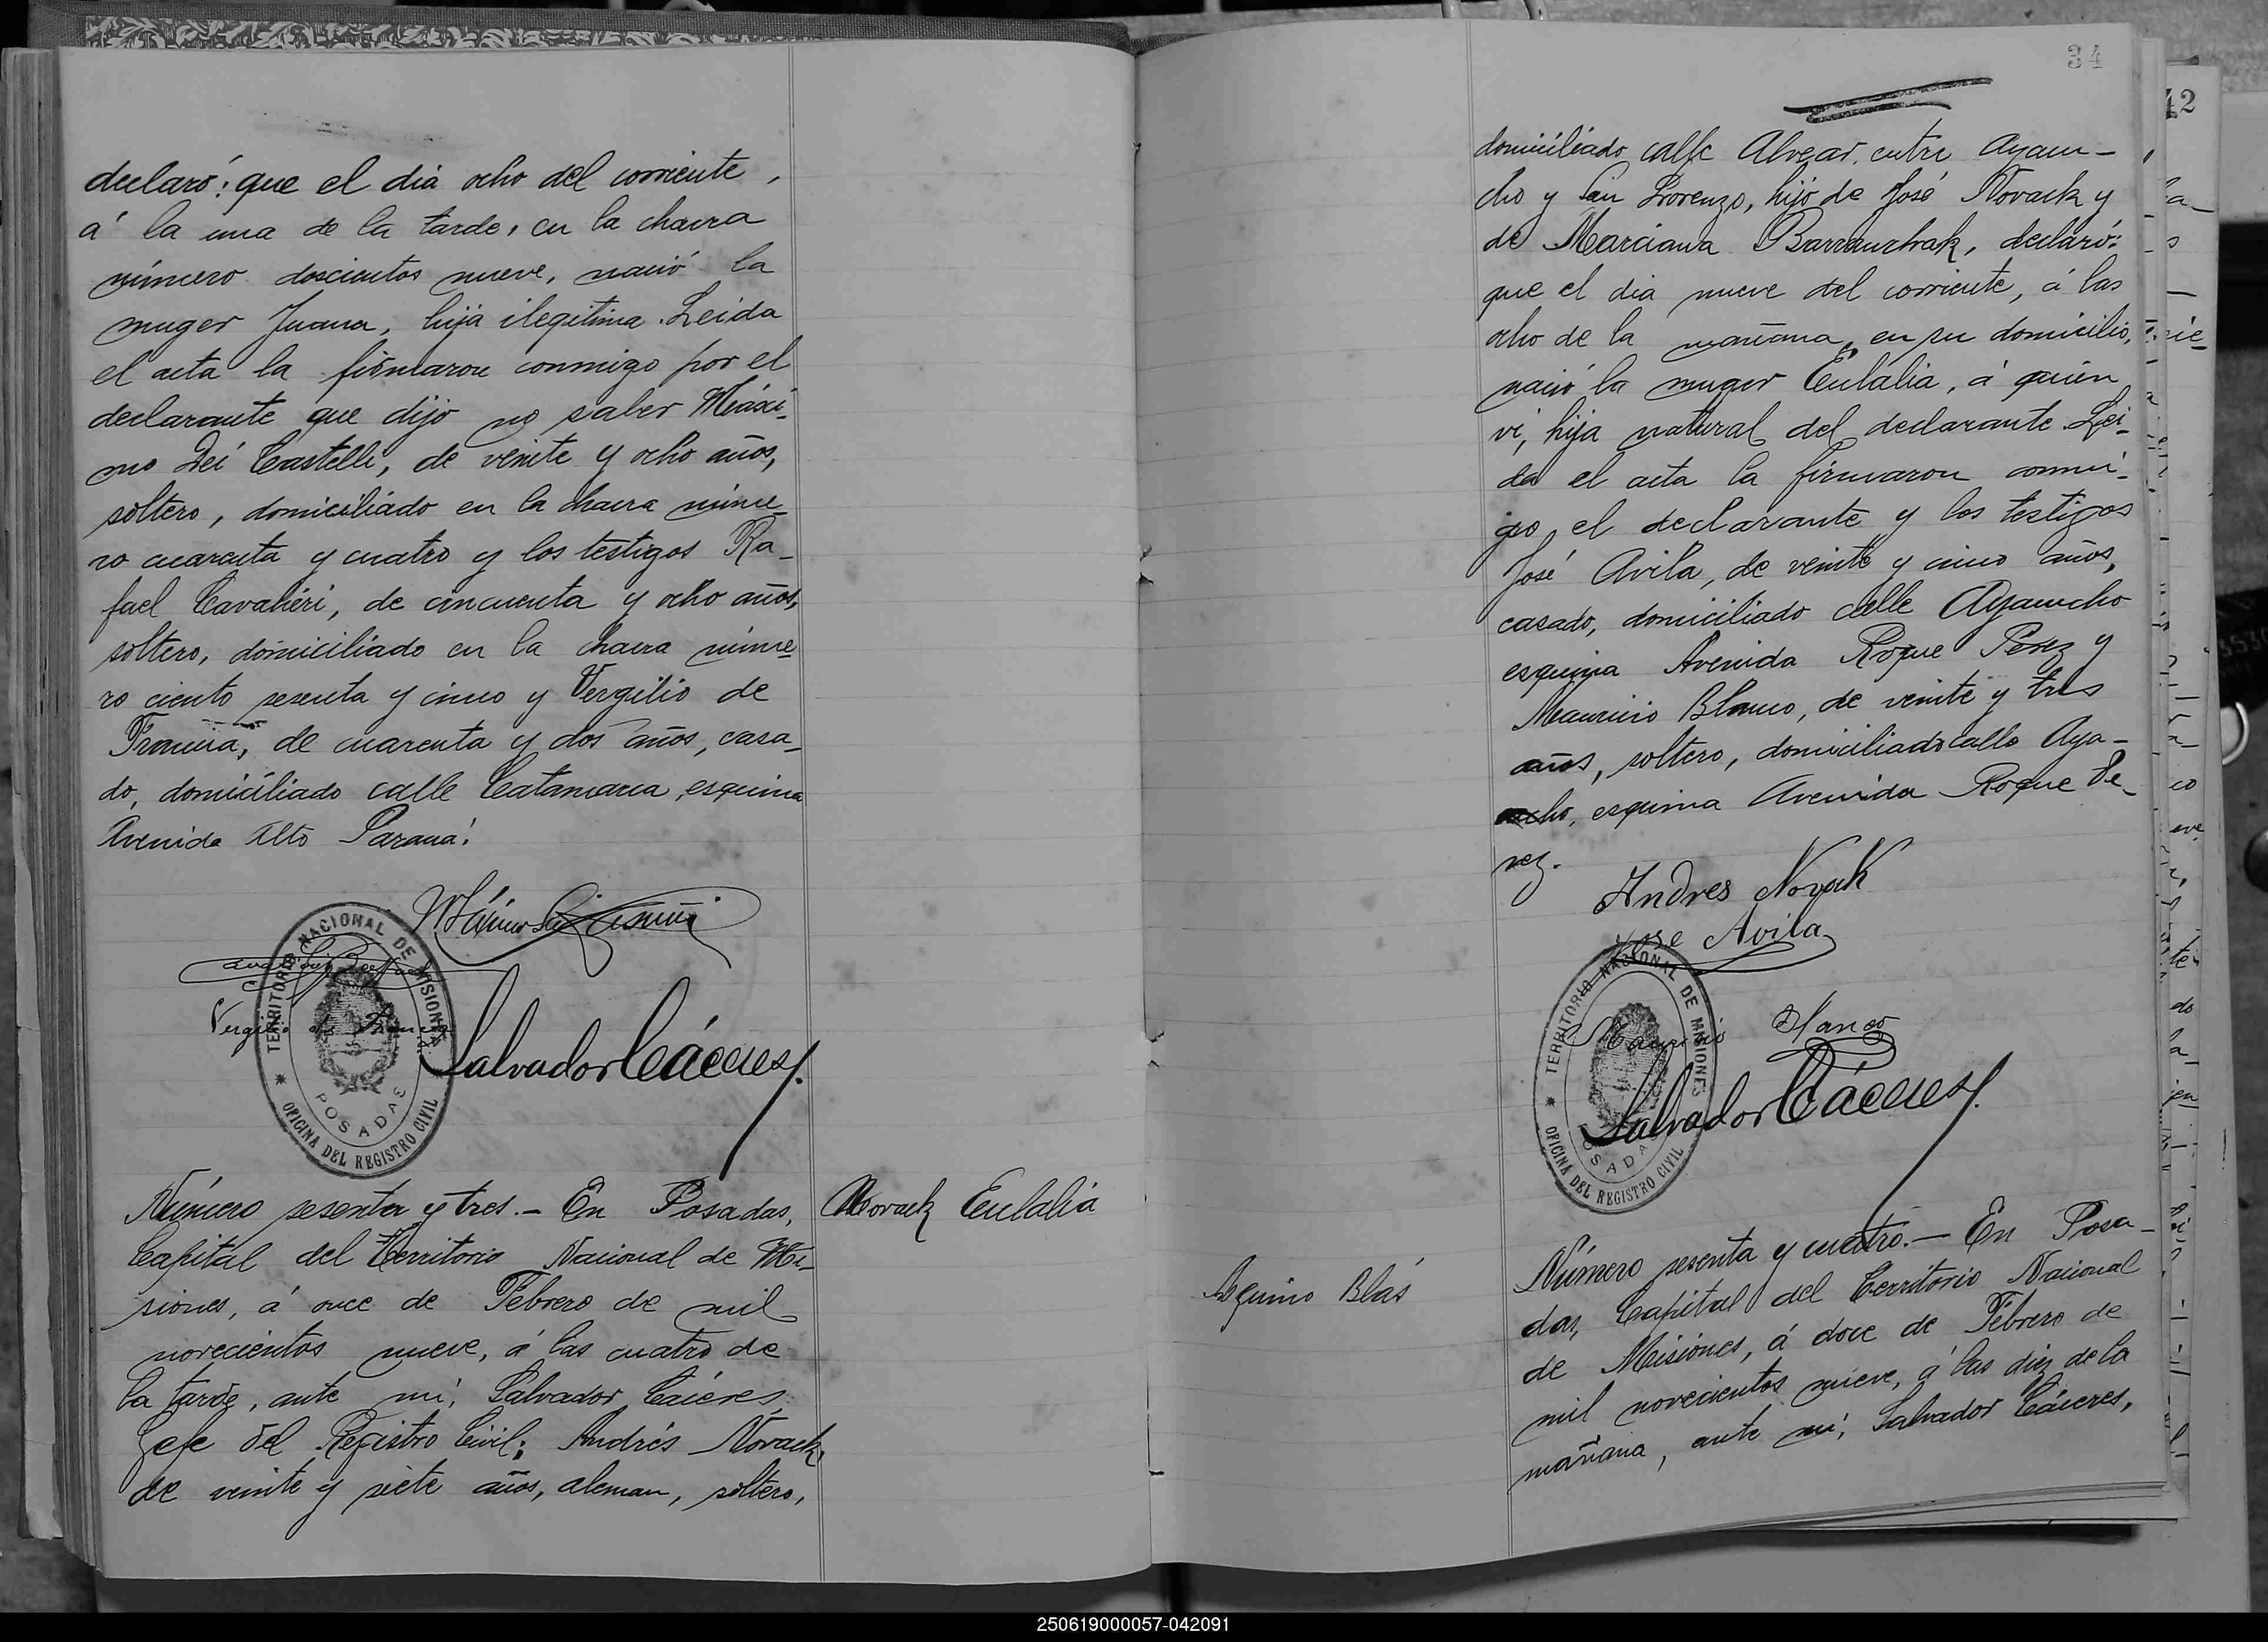 declaró: que el dia ocho del corriente,
á la una de la tarde, en la chacra
número doscientos nueve, nació la
muger Juana, hija ilegitima. Leida
el acta la firmaron conmigo por el
declarante que dijo no saber Máxi-
mo Dei Castelli, de veinte y ocho años,
soltero, domiciliado en la chacra núme-
ro cuarenta y cuatro y los testigos Ra-
fael Cavalieri, de cincuenta y ocho años,
soltero, domiciliado en la chacra núme-
ro ciento sesenta y cinco y Vergilio de
Francia, de cuarenta y dos años, casa-
do, domiciliado calle Catamarca, esquina
Avenida Alto Paraná.
Máximo
Vergilio de Francia
Salvador Cáceres
TERRITORIO NACIONAL DE MISIONES
POSADAS
OFICINA DEL REGISTRO CIVIL
Número sesenta y tres.- En Posadas,
Capital del Territorio Nacional de Mi-
siones, á once de Febrero de mil
novecientos nueve, á las cuatro de
la tarde, ante mi, Salvador Cáceres,
Gefe del Registro Civil; Andrés Novack,
de veinte y siete años, aleman, soltero,
Novack Eulalia
34
42
domiciliado calle Alvear, entre Ayacu-
cho y San Lorenzo, hijo de José Novack y
de Marciana , declaró:
que el dia nueve del corriente, á las
ocho de la mañana, en su domicilio,
nació la muger Eulalia, á quien
vi, hija natural del declarante. Lei-
da el acta la firmaron conmi-
go el declarante y los testigos
José Avila, de veinte y cinco años,
casado, domiciliado calle Ayacucho
esquina Avenida Roque Perez y
Mauricio Blanco, de veinte y tres
años, soltero, domiciliado calle Aya-
cucho, esquina Avenida Roque Pe-
rez.
Andres Novak
Jose Avila
Mauricio Blanco
Salvador Cáceres
TERRITORIO NACIONAL DE MISIONES
POSADAS
OFICINA DEL REGISTRO CIVIL
Aquino Blás
Número sesenta y cuatro.- En Posa-
das, Capital del Territorio Nacional
de Misiones, á doce de Febrero de
mil novecientos nueve, á las diez de la
mañana, ante mi, Salvador Cáceres,
250619000057-042091